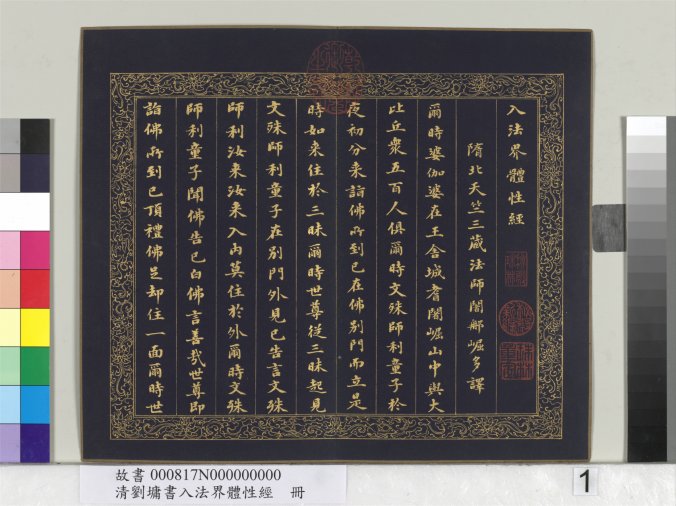 入法界體性經
隋北天竺三藏法師闍那崛多譯
爾時婆伽婆在王舍城耆闍崛山中與大
比丘眾五百人俱爾時文殊師利童子於
夜初分來詣佛所到已在佛別門而立是
時如來住於三昧爾時世尊從三昧起見
文殊師利童子在別門外見已告言文殊
師利汝來汝來入內莫住於外爾時文殊
師利童子聞佛告已白佛言善哉世尊即
詣佛所到已頂禮佛足却住一面爾時世
故書 000817N000000000
清劉墉書入法界體性經 冊
1